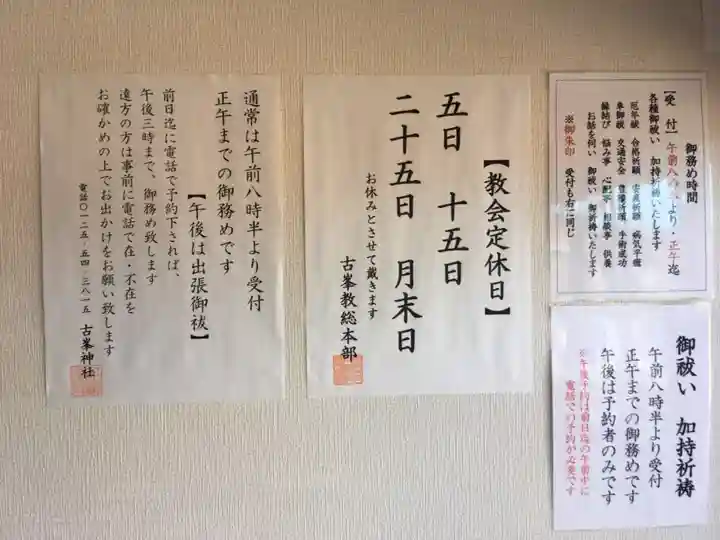 御務め時間
【受 付】午前八時半より・正午迄
各種御祓い 加持祈祷いたします
厄年祓 合格祈願 安産祈願 病気平癒
車御祓 交通安全 豊穣祈願 手術成功
縁結び 悩み事 心配事 相談事 供養
お話を伺い 御祓い 御祈祷いたします
※御朱印 受付も右に同じ
御祓い 加持祈祷
午前八時半より受付
正午までの御務めです
午後は予約者のみです
※午後予約は前日迄の午前中に
電話での予約が必要です
【教会定休日】
五日 十五日
二十五日 月末日
お休みとさせて戴きます
古峯教総本部
通常は午前八時半より受付
正午までの御務めです
【午後は出張御祓】
前日迄に電話で予約下されば、
午後三時まで、御務め致します
遠方の方は事前に電話で在・不在を
お確かめの上でお出かけをお願い致します
電話〇一二五-五四-三八一五 古峯神社